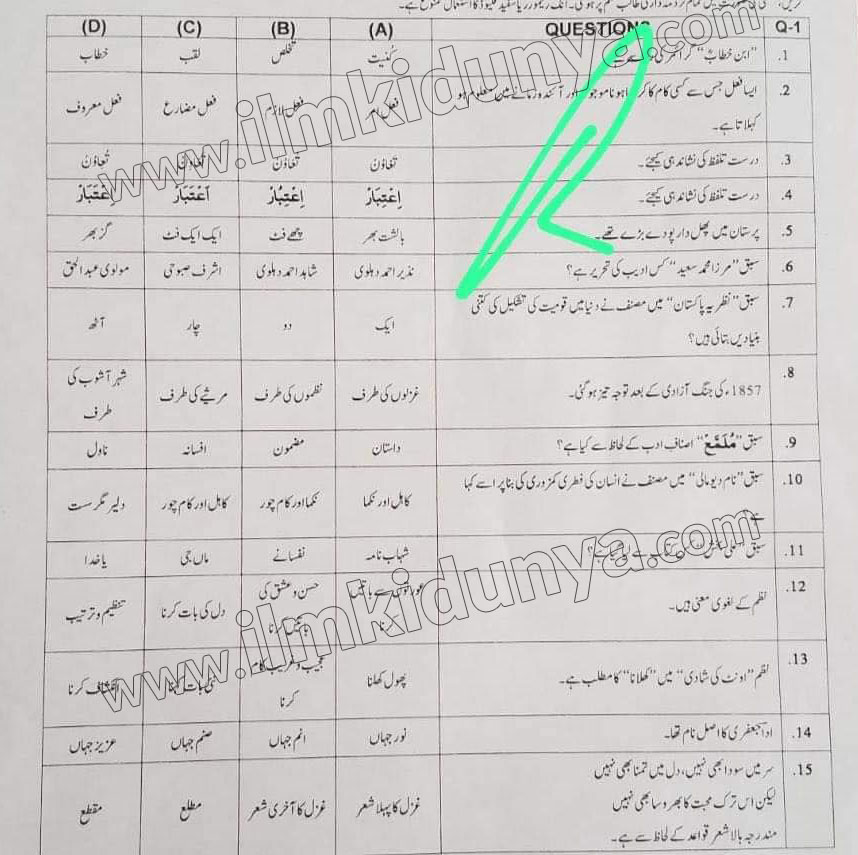 (D) (C) (B) (A) QUESTIONS Q-1
1. "ابن خطابؓ" گرائمر کی
کُنیت تخلص لقب خطاب
2. ایسا فعل جس سے کسی کام کا کرنا یا ہونا موجودہ اور آئندہ زمانے میں معلوم ہو
کہلاتا ہے۔
فعل امر فعل لازم فعل مضارع فعل معروف
3. درست تلفظ کی نشاندہی کیجئے۔
4. درست تلفظ کی نشاندہی کیجئے۔
اِعْتِبَارْ اِعْتِبُارْ اَعْتَبَارْ اِعْتَبَارْ
5. پرستان میں پھل دار پودے بڑے تھے۔
بالشت بھر چھے فٹ ایک ایک فٹ گز بھر
6. سبق "مرزا محمد سعید" کس ادیب کی تحریر ہے؟
نذیر احمد دہلوی شاہد احمد دہلوی اشرف صبوحی مولوی عبدالحق
7. سبق "نظریہ پاکستان" میں مصنف نے دنیا میں قومیت کی تشکیل کی کتنی
بنیادیں بتائی ہیں؟
ایک دو چار آٹھ
8. 1857ء کی جنگ آزادی کے بعد توجہ تیز ہو گئی۔
غزلوں کی طرف نظموں کی طرف مرثیے کی طرف شہر آشوب کی
طرف
9. سبق "مُلَمَّعْ" اصناف ادب کے لحاظ سے کیا ہے؟
داستان مضمون افسانہ ناول
10. سبق "نام دیو مالی" میں مصنف نے انسان کی فطری کمزوری کی بنا پر اسے کہا
ہے
کاہل اور نکما نکما اور کام چور کاہل اور کام چور دلیر مگر ست
11. سبق "علی بخش" کس کتاب سے لیا گیا ہے؟
شہاب نامہ نفسانے ماں جی یا خدا
12. نظم کے لغوی معنی ہیں۔
عورتوں سے باتیں
کرنا
حسن و عشق کی
باتیں کرنا
دل کی بات کرنا تنظیم و ترتیب
13. نظم "اونٹ کی شادی" میں "کھلانا" کا مطلب ہے۔
پھول کھلنا
عجیب و غریب کام
کرنا
انکشاف کرنا
14. اداؔ جعفری کا اصل نام تھا۔
نور جہاں انم جہاں صنم جہاں عزیز جہاں
15. سر میں سودا بھی نہیں، دل میں تمنا بھی نہیں
لیکن اس ترک محبت کا بھروسا بھی نہیں
مندرجہ بالا شعر قواعد کے لحاظ سے ہے۔
غزل کا پہلا شعر غزل کا آخری شعر مطلع مقطع
www.ilmkidunya.com
www.ilmkidunya.com